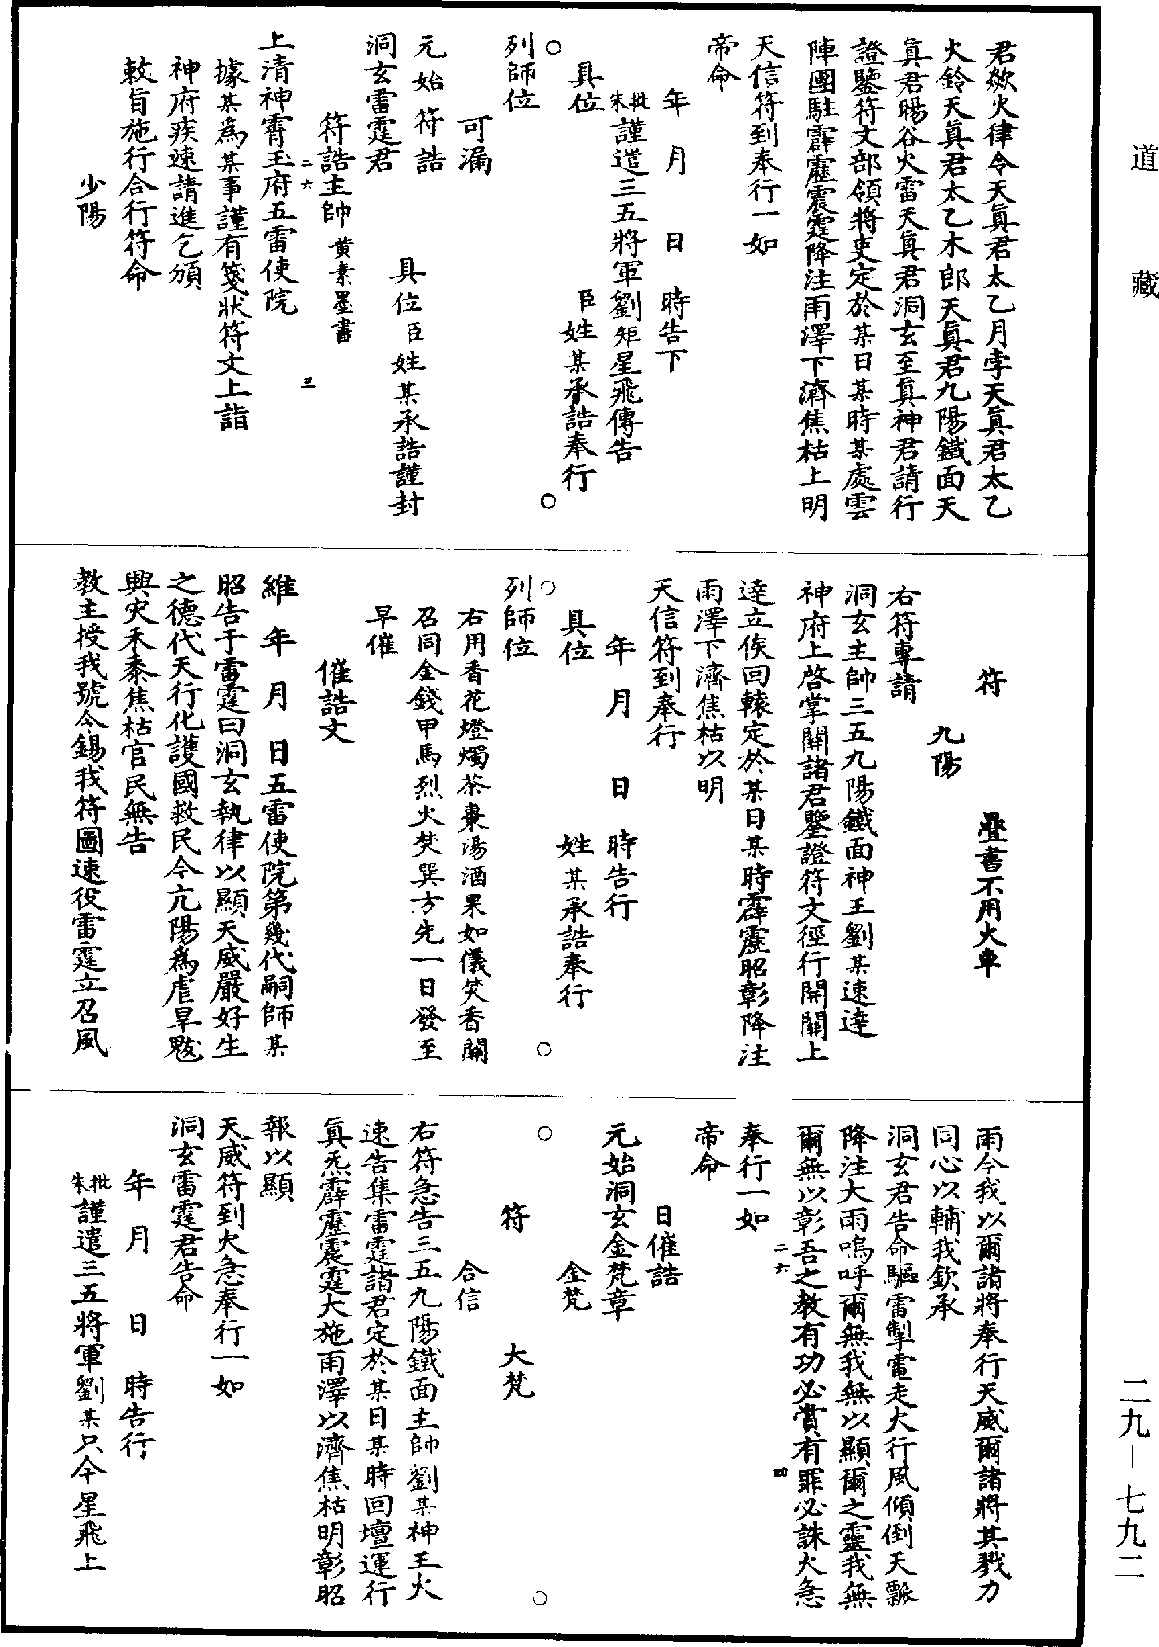 道藏
君欻火律令天真君太乙月孛天真君太乙
火鈴天真君太乙木郎天真君九陽鐵面天
真君暘谷火雷天真君洞玄至真神君請行
證鑒符文部領將吏定於某日某時某處雲
陣團駐霹靂震霆降注雨澤下濟焦枯上明
天信符到奉行一如
帝命
年 月 日 時告下
朱批謹遣三五將軍劉矩星飛傳告
具位 臣姓某承誥奉行
○ ○
列師位
可漏
元始符誥
具位臣姓某承誥謹封
洞玄雷霆君
符誥主帥 黃素墨書
二六 三
上清神霄玉府五雷使院
據某為某事謹有箋狀符文上詣
神府疾速請進乞頒
敕旨施行合行符命
少陽
符 疊書不用火車
九陽
右符專請
洞玄主帥三五九陽鐵面神王劉某速達
神府上啓掌關諸君鑒證符文徑行開關上
達立俟回轅定於某日某時霹靂昭彰降注
雨澤下濟焦枯以明
天信符到奉行
年 月 日 時告行
具位 姓某承誥奉行
○ ○
列師位
右用香花燈燭茶棗湯酒果如儀焚香關
召同金錢甲馬烈火焚巽方先一日發至
早催
催誥文
維年月日五雷使院第幾代嗣師某
昭告于雷霆曰洞玄執律以顯天威嚴好生
之德代天行化護國救民今亢陽為虐旱魃
興灾禾黍焦枯官民無告
教主授我號令錫我符圖速役雷霆立召風
雨今我以爾諸將奉行天威爾諸將其戮力
同心以輔我欽承
洞玄君告命驅雷掣電走火行風傾倒天瓢
降注大雨嗚呼爾無我無以顯爾之靈我無
爾無以彰吾之教有功必賞有罪必誅火急
奉行一如
二六 四
帝命
日催誥
元始洞玄金梵章
金梵
○ ○
符 大梵
合信
右符急告三五九陽鐵面主帥劉某神王火
速告集雷霆諸君定於某日某時回壇運行
真炁霹靂震霆大施雨澤以濟焦枯明彰昭
報以顯
天威符到火急奉行一如
洞玄雷霆君告命
年 月 日 時告行
朱批謹遣三五將軍劉某只今星飛上
二九—七九二